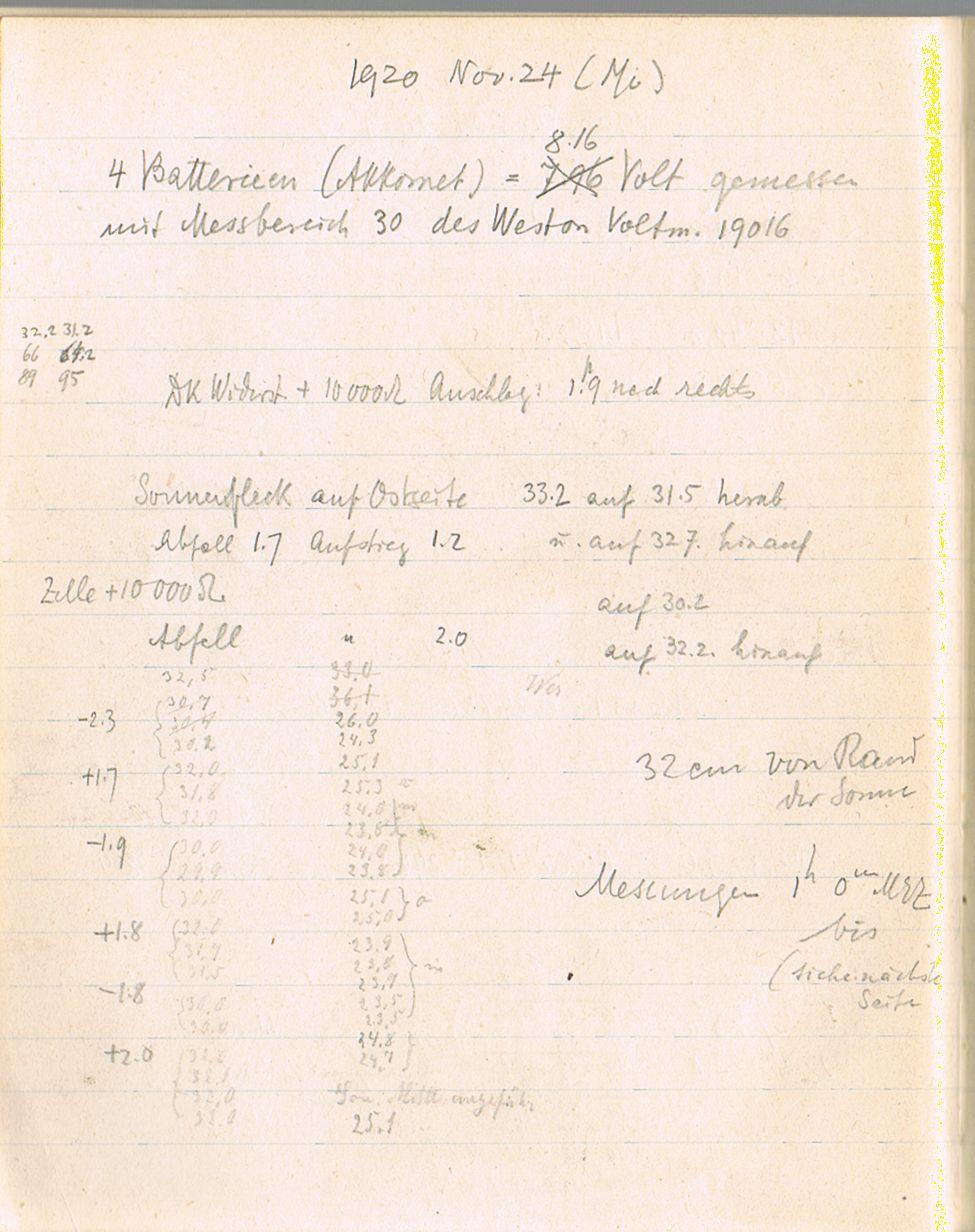 1920 Nov. 24 (Mi)
8.16
4 Batterieen (Akkomet) = 7.96 Volt gemessen
mit Messbereich 30 des Weston Voltm. 19016
32,2 31.2
66
89 95
+ 10000Ω Anschlag: 1.9 nach rechts
Sonnenfleck auf Ostseite 33.2 auf 31.5 herab
Abfall 1.7 Aufstieg 1.2 u. auf 32.7. hinauf
Zelle + 10000Ω
auf 30.2
Abfall " 2.0
auf 32.2. hinauf
32,5 33.0
30,7 36,1
-2.3 30,4 26.0
30.2 24,3
+1.7 32,0 25,1
31,8 25,3
32,0 24,0
23,8
-1.9 30,0 24,0
29,9 23,8
30,0 25,1 a
25,0
+1.8 32,0 23.9
31,7 23,8 in
31,5 23,7
-1.8 30,0 23,5
30,0 23,5
24,8
+2.0 24,7
32,1
32,0 ungefähr
25.1
32 cm von Rand
der Sonne
Messungen 1h 0m MEZ
bis
(siehe nächste
Seite